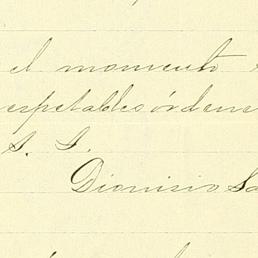 el momento
espetables órdene
S. S.
Dionisio Sa